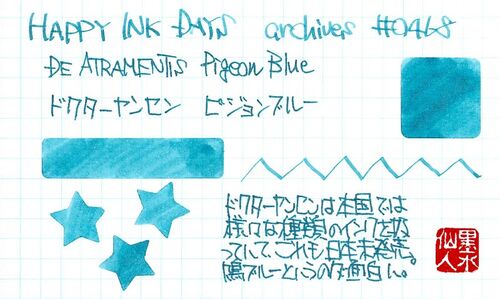 HAPPY INK DAYS archives #0468
DE ATRAMENTIS Pigeon Blue
ドクターヤンセン ピジョンブルー
ドクターヤンセンは本国では
様々な種類のインクを扱
っていて、これも日本未発売。
鳩ブルーというのが面白い。
墨水
仙人